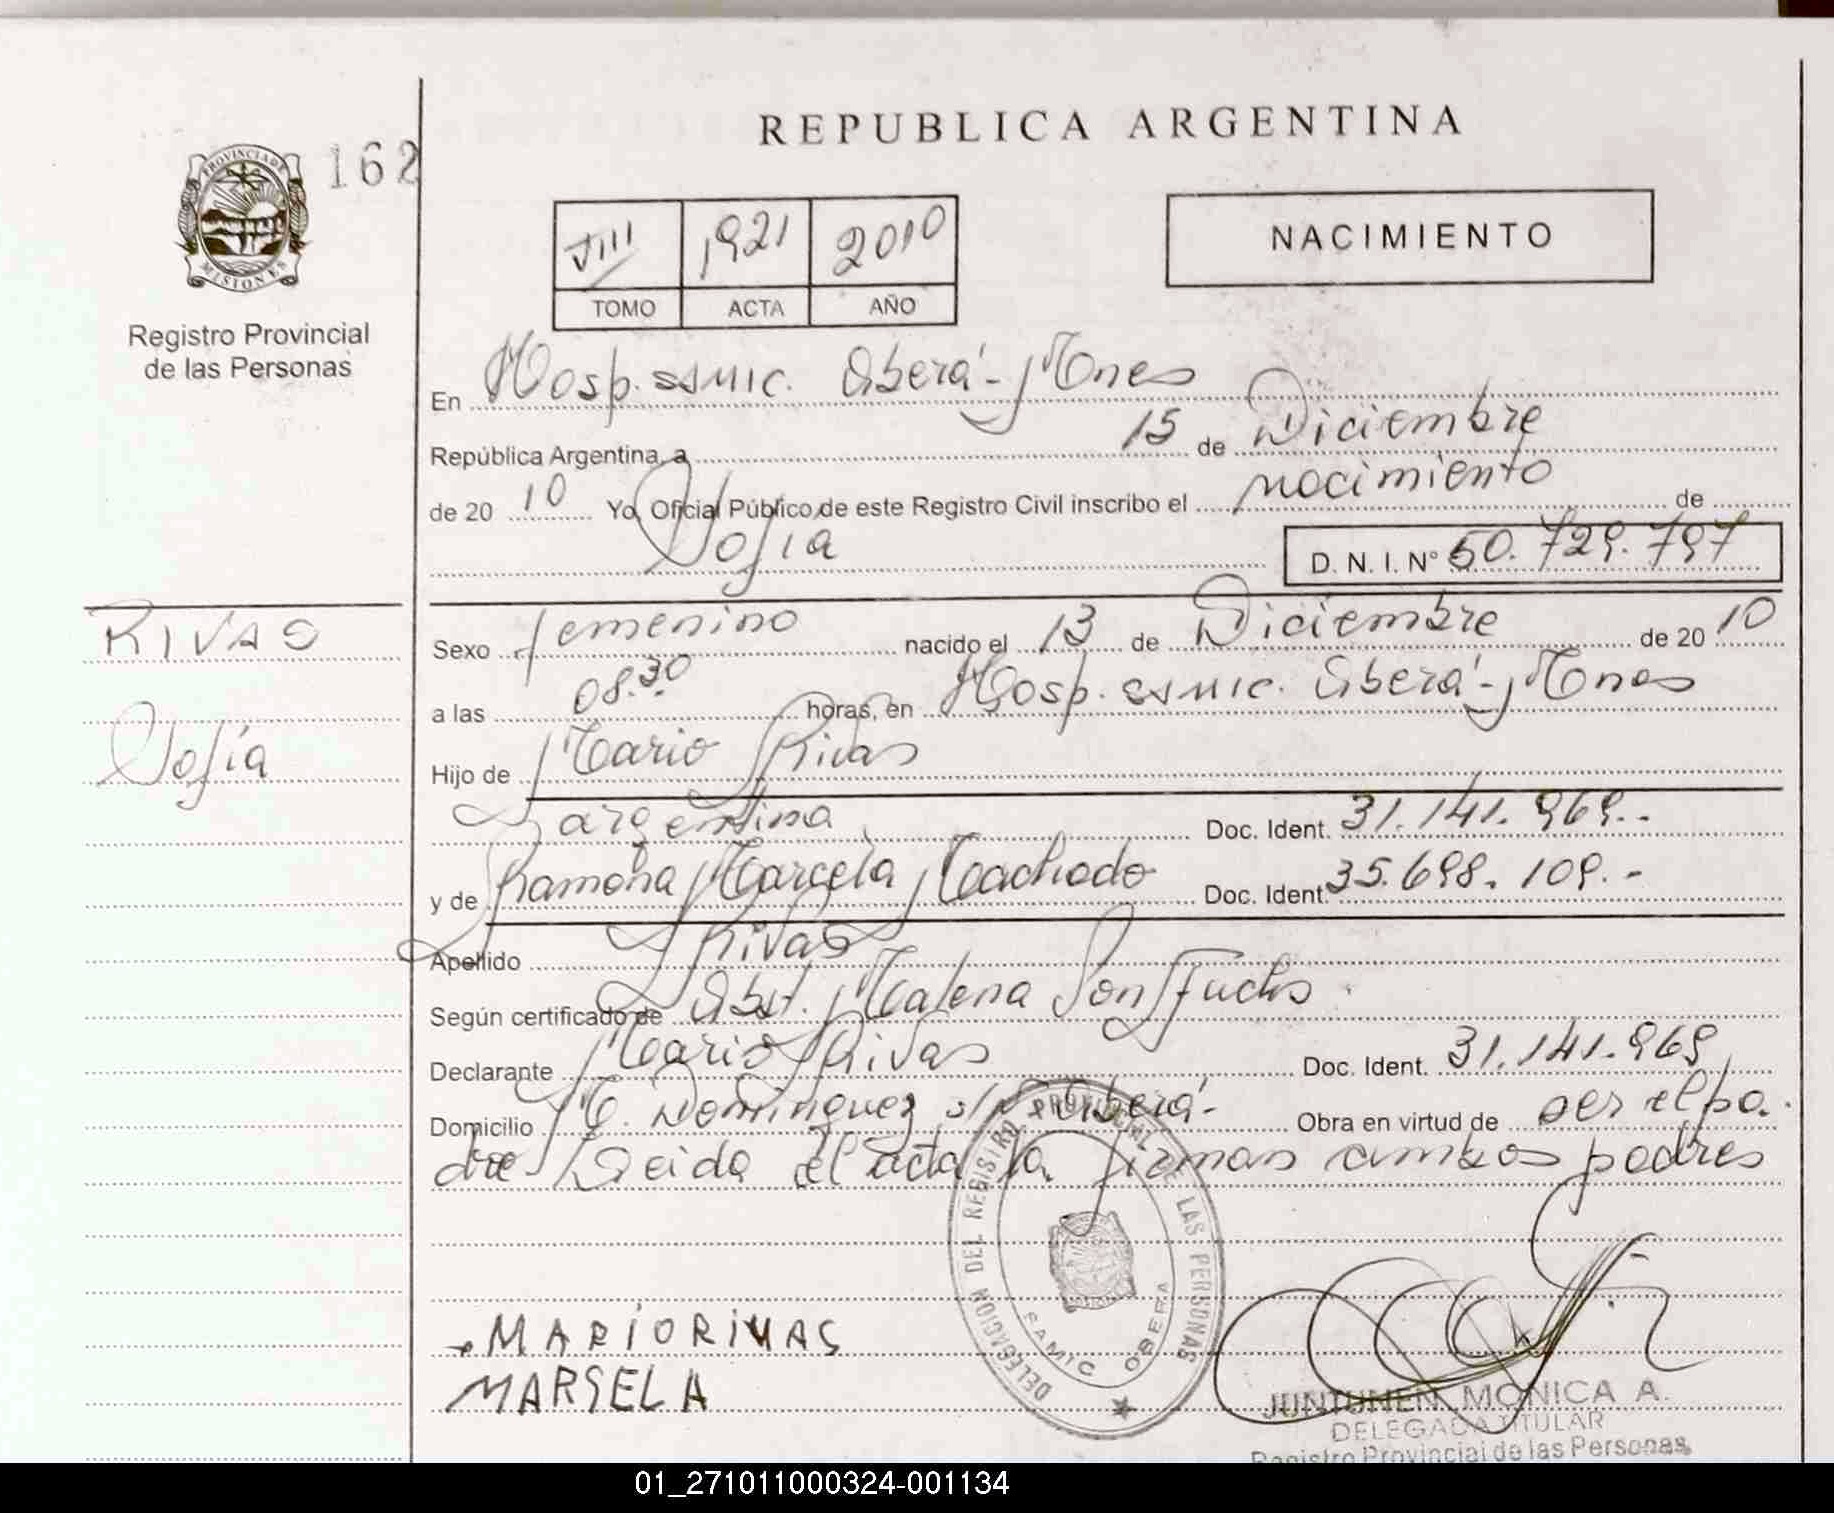 REPUBLICA ARGENTINA
162
PROVINCIA DE
MISIONES
Registro Provincial
de las Personas
VIII 1921 2010
TOMO ACTA AÑO
NACIMIENTO
En Hosp. SAMIC. Oberá - Mnes
República Argentina, a 15 de Diciembre
de 20 10 Yo, Oficial Público de este Registro Civil inscribo el nacimiento de
Sofía D. N. I. Nº 50.729.797
RIVAS
Sofía
Sexo femenino nacido el 13 de Diciembre de 20 10
a las 08.30 horas, en Hosp. SAMIC. Oberá - Mnes
Hijo de Mario Rivas
argentina Doc. Ident. 31.141.969.-
y de Ramona Marcela Machado Doc. Ident. 35.698.109.-
Apellido Rivas
Según certificado de Obst. Malena Fuchs
Declarante Mario Rivas Doc. Ident. 31.141.969
Domicilio Dominguez s/nº Oberá - Obra en virtud de ser el pa.
dre Leida el acta la firman ambos padres
DELEGACION DEL REGISTRO PROVINCIAL DE LAS PERSONAS
SAMIC OBERA
MARIO RIVAS
MARSELA
JUNTUNEN MONICA A.
DELEGADA TITULAR
Registro Provincial de las Personas
01_271011000324-001134